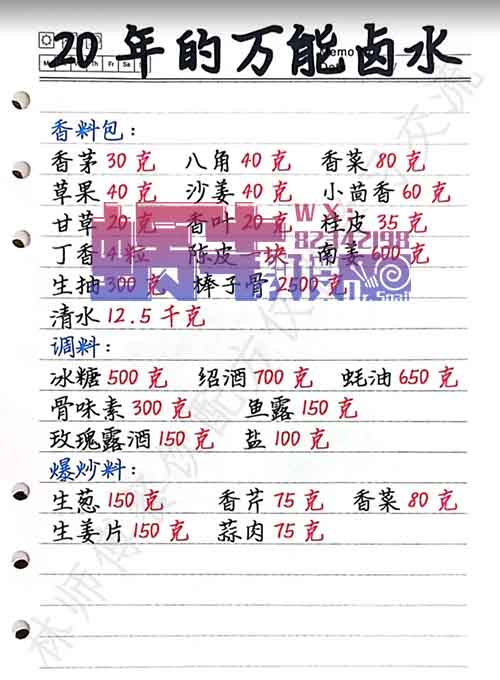 20年的万能卤水
香料包:
香茅30克 八角40克 香菜80克
草果40克 沙姜40克 小茴香60克
甘草20克 香叶20克 桂皮35克
丁香4粒 陈皮一块 南姜600克
生抽300克 棒子骨2500克
清水12.5千克
调料:
冰糖500克 绍酒700克 蚝油650克
骨味素300克 鱼露150克
玫瑰露酒150克 盐100克
爆炒料:
生葱150克 香芹75克 香菜80克
生姜片150克 蒜肉75克